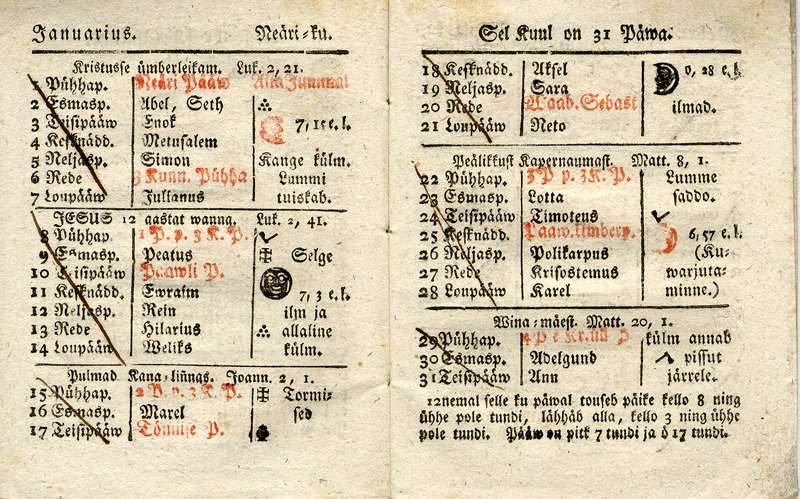 Januarius. Neäri-ku.
Kristusse ümberleikam. Luk. 2, 21.
1 Pühhap. Neäri Pääw Alla Jummal
2 Esmasp. Abel, Seth
3 Teisipääw Enok 7, 15 e. l.
4 Kesknädd. Metusalem
5 Neljasp. Simon Kange külm.
6 Rede 3 Kunn. Pühha Lummi
7 Loupääw Julianus tuiskab.
JESUS 12 aastat wanna. Luk. 2, 41.
8 Pühhap. 1 P. p. 3 K. P.
9 Esmasp. Peatus Selge
10 Teisipääw Paawli P.
11 Kesknädd. Ewraim 7, 3 e. k.
12 Neljasp. Rein ilm ja
13 Rede Hilarius allaline
14 Loupääw Weliks külm.
Pulmad Kana-liñngs. Joann. 2, 1.
15 Pühhap. 2 P. p. 3 K. P. Tormi-
16 Esmasp. Marel sed
17 Teisipääw Tönnise P.
Sel Kuul on 31 Päwa.
18 Kesknädd. Aksel 0, 28 e. k.
19 Neljasp. Sara
20 Rede Waab. Sebast ilmad.
21 Loupääw Neto
Peälikkust Kapernaumast. Matt. 8, 1.
22 Pühhap. 3 P p. 3 K. P. Lumme
23 Esmasp. Lotta saddo.
24 Teisipääw Timoteus
25 Kesknädd. Paaw. Umberp. 6, 57 e. l.
26 Neljasp. Polikarpus (Ku-
27 Rede Krisostemus warjuta-
28 Loupääw Karel minne.)
Wina-mäest. Matt. 20, 1.
29 Pühhap. 4 P külm annab
30 Esmasp. Adelgund pissut
31 Teisipääw Ann järrele.
12nemal selle ku päwal touseb päike kello 8 ning
ühhe pole tundi, lähhäb alla, kello 3 ning ühhe
pole tundi. Pääw on pitk 7 tundi ja ö 17 tundi.